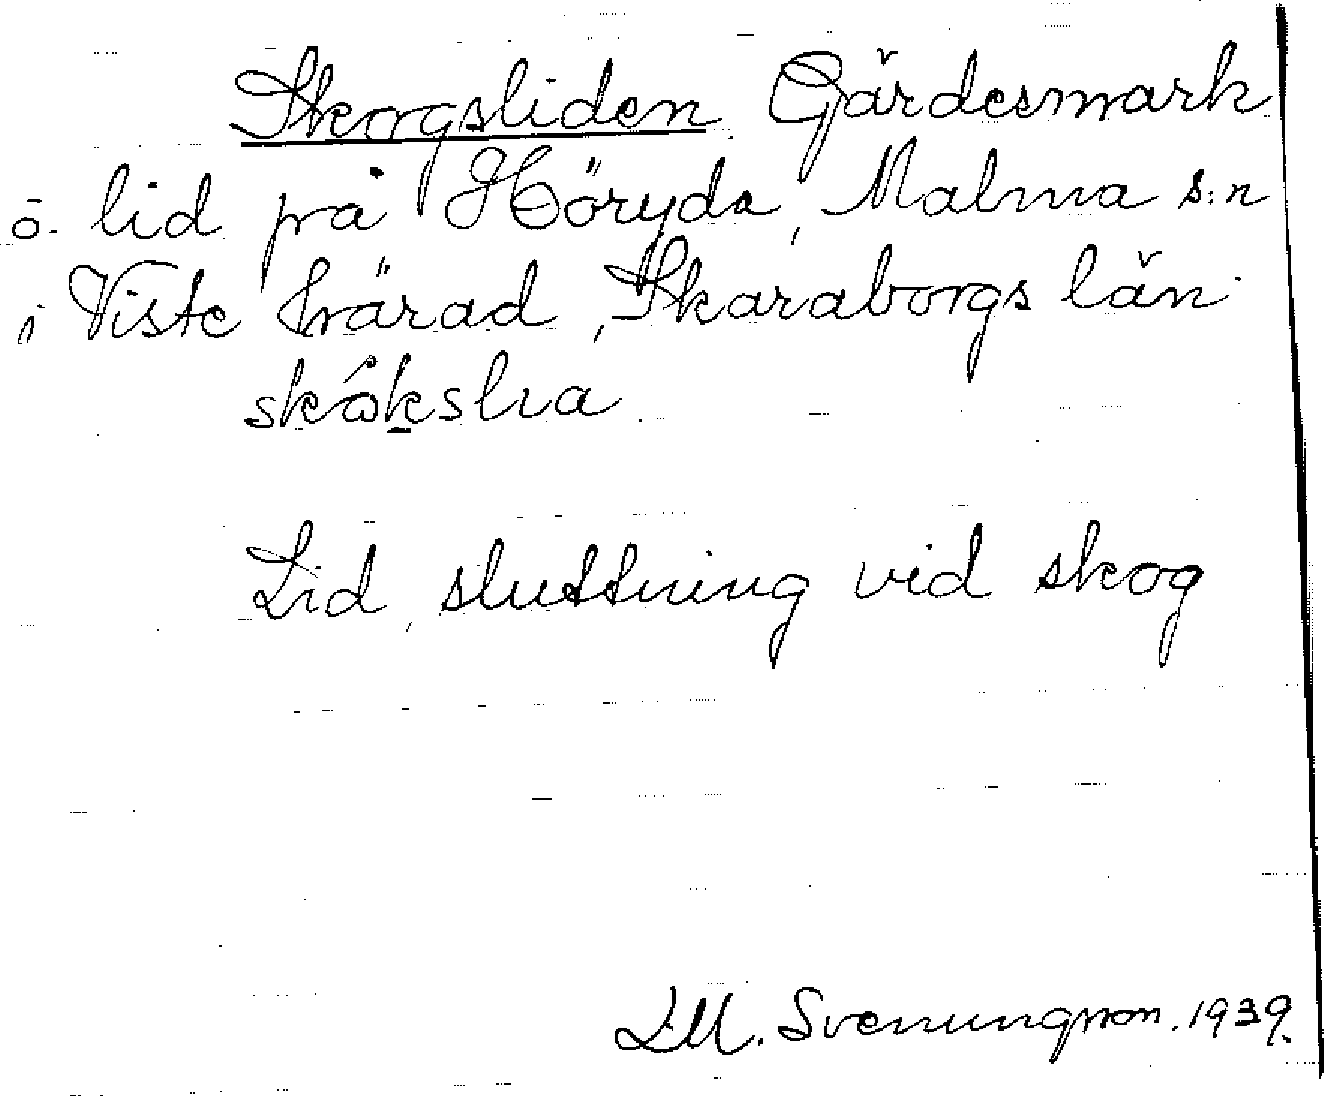 Skogsliden Gärdesmark
o. lid på Höryda, Malma s:n
i Viste härad, Skaraborgs län
skåkslia
Lid, sluttning vid skog
L.M. Svenungsson. 1939.